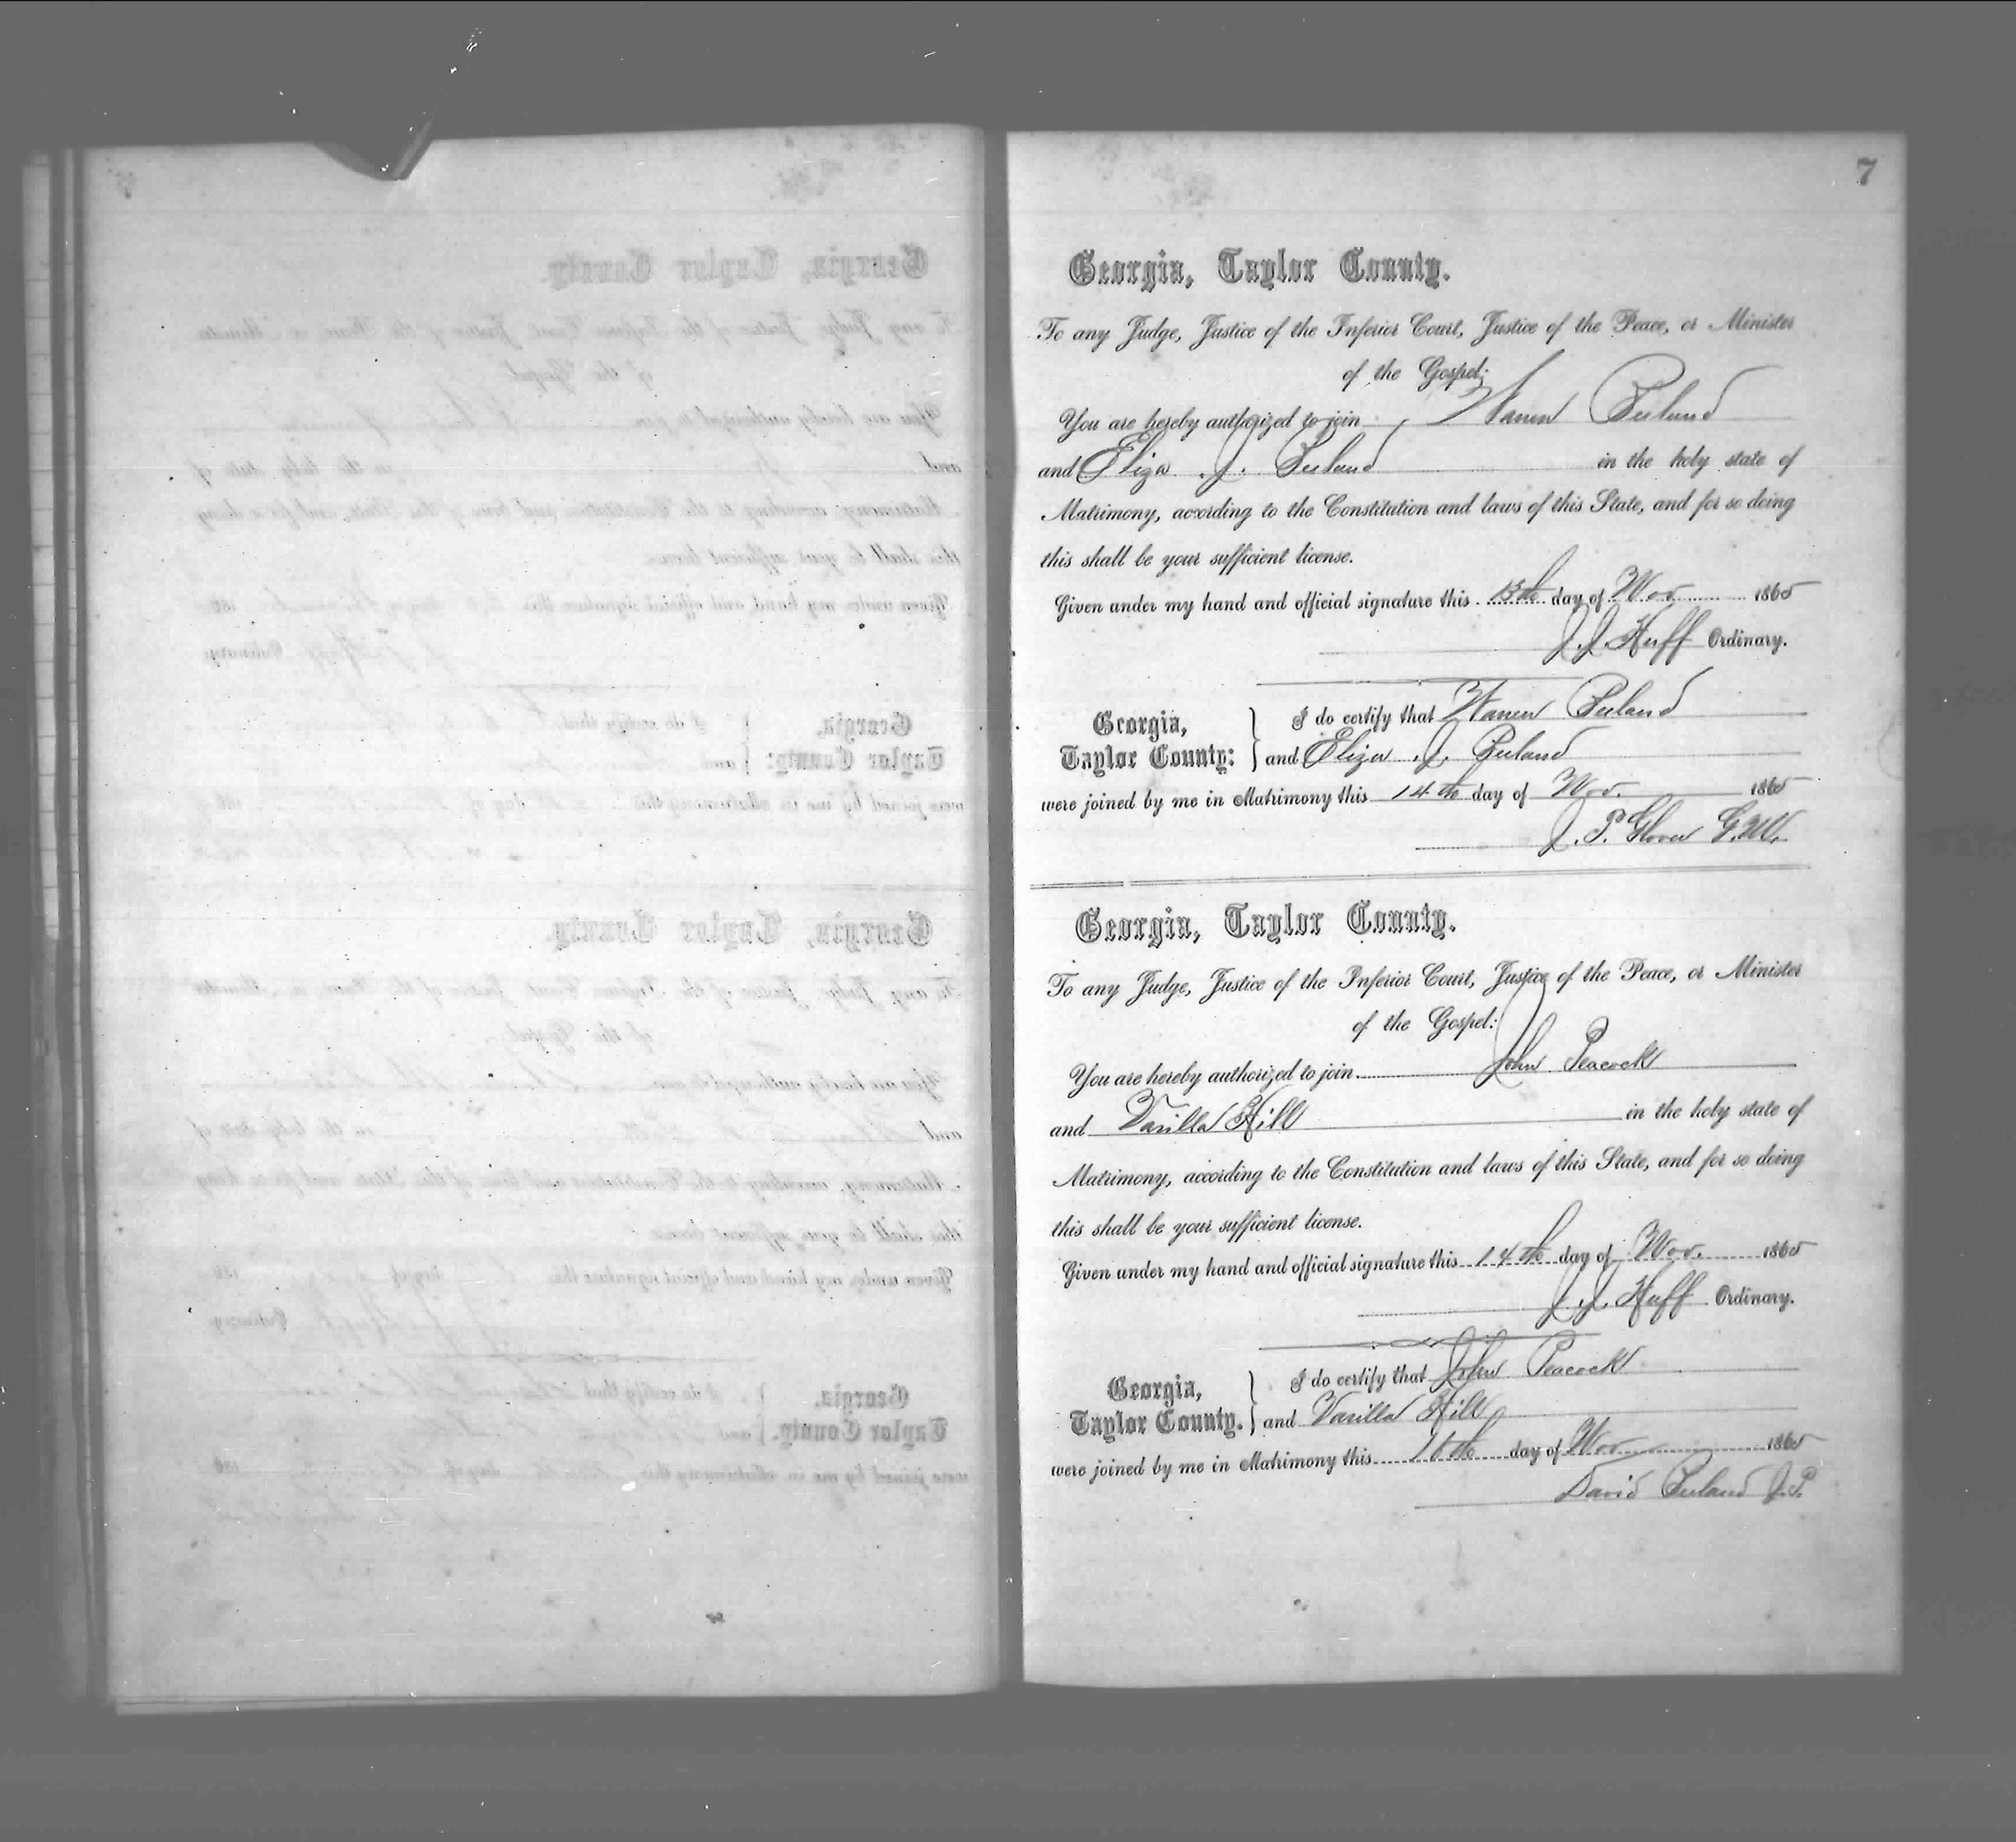 7
Georgia, Taylor County.
To any Judge, Justice of the Inferior Court, Justice of the Peace, or Minister
of the Gospel:
You are hereby authorized to join Warren
and Eliza J. in the holy state of
Matrimony, according to the Constitution and laws of this State, and for so doing
this shall be your sufficient license.
Given under my hand and official signature this 13th day of Nov 1865
J. J. Huff Ordinary.
Georgia,
Taylor County:
I do certify that Warren
and Eliza J.
were joined by me in Matrimony this 14th day of Nov. 1865
J. P. Glover
Georgia, Taylor County.
To any Judge, Justice of the Inferior Court, Justice of the Peace, or Minister
of the Gospel:
You are hereby authorized to join John Peacock
and Varilla Hill in the holy state of
Matrimony, according to the Constitution and laws of this State, and for so doing
this shall be your sufficient license.
Given under my hand and official signature this 14th day of Nov. 1865
J. J. Huff Ordinary.
Georgia,
Taylor County.
I do certify that John Peacock
and Varilla Hill
were joined by me in Matrimony this 16th day of Nov 1865
David J.P.